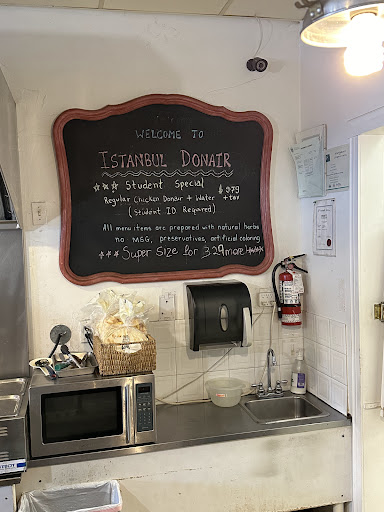 WELCOME TO
ISTANBUL DONAIR
Student Special
Regular Chicken Donair + Water + tax
(Student ID Required)
All menu items are prepared with natural herbs
no MSG, preservatives, artificial coloring
*** SUPER SIZE for 3.29 more